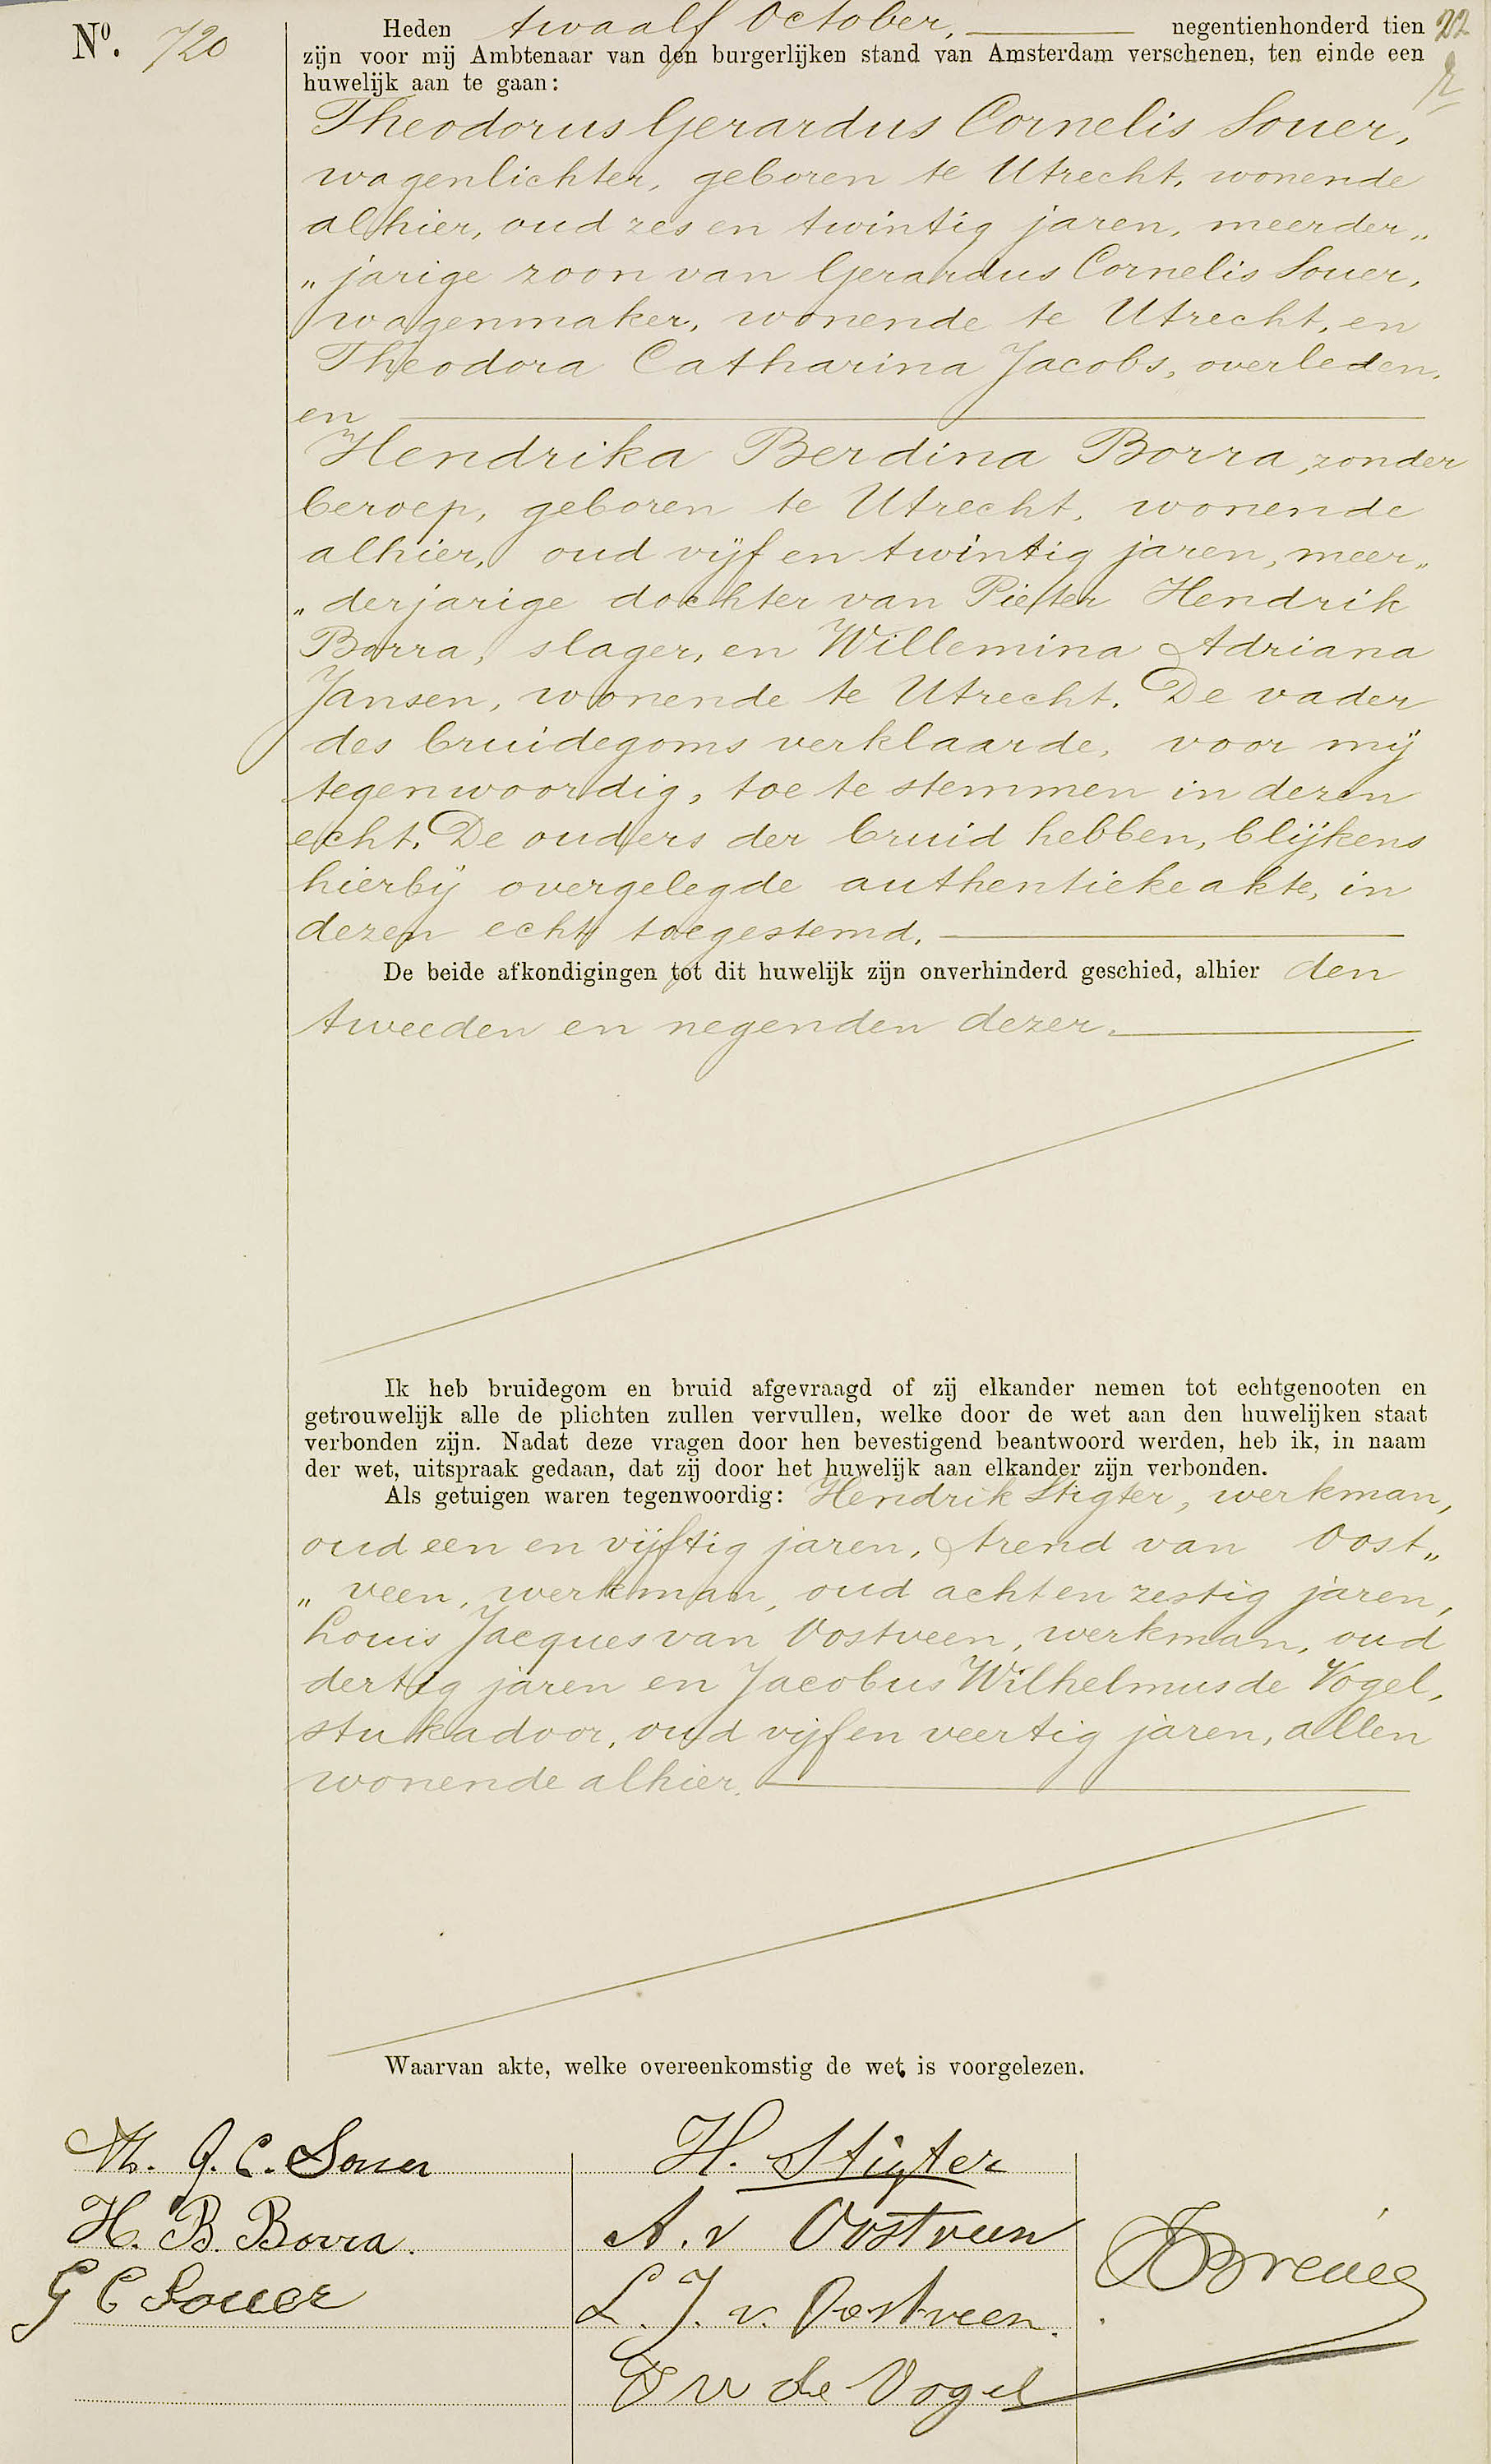 Nº. 720
Heden twaalf October, negentienhonderd tien 22
zijn voor mij Ambtenaar van den burgerlijken stand van Amsterdam verschenen, ten einde een
huwelijk aan te gaan:
Theodorus Gerardus Cornelis Souer,
wagenlichter, geboren te Utrecht, wonende
alhier, oud zes en twintig jaren, meerder„
„jarige zoon van Gerardus Cornelis Souer,
wagenmaker, wonende te Utrecht, en
Theodora Catharina Jacobs, overleden,
en
Hendrika Berdina Borra, zonder
beroep, geboren te Utrecht, wonende
alhier, oud vijf en twintig jaren, meer„
„derjarige dochter van Pieter Hendrik
Borra, slager, en Willemina Adriana
Jansen, wonende te Utrecht. De vader
des bruidegoms verklaarde, voor mij
tegenwoordig, toe te stemmen in dezen
echt. De ouders der bruid hebben, blijkens
hierbij overgelegde authentieke akte, in
dezen echt toegestemd.
De beide afkondigingen tot dit huwelijk zijn onverhinderd geschied, alhier den
tweeden en negenden dezer.
Ik heb bruidegom en bruid afgevraagd of zij elkander nemen tot echtgenooten en
getrouwelijk alle de plichten zullen vervullen, welke door de wet aan den huwelijken staat
verbonden zijn. Nadat deze vragen door hen bevestigend beantwoord werden, heb ik, in naam
der wet, uitspraak gedaan, dat zij door het huwelijk aan elkander zijn verbonden.
Als getuigen waren tegenwoordig: Hendrik Stigter, werkman,
oud een en vijftig jaren, Arend van Oost„
„veen, werkman, oud acht en zestig jaren,
Louis Jacques van Oostveen, werkman, oud
dertig jaren en Jacobus Wilhelmus de Vogel,
stukadoor, oud vijf en veertig jaren, allen
wonende alhier.
Waarvan akte, welke overeenkomstig de wet is voorgelezen.
Th. G. C. Souer
H. B. Borra.
G C Souer
H. Stigter
A. v Oostveen
L. J. v. Oostveen.
J W de Vogel